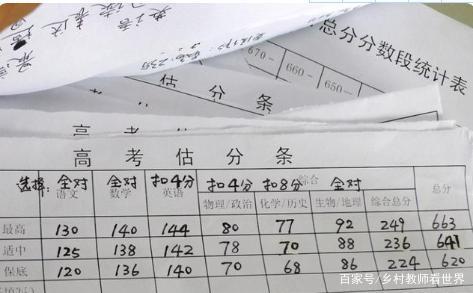 总分分数段统计表
670- 660- 650-
估分条
高考
高考估分条
选择: 全对 全对 扣4分 扣4分 扣8分 综合 全对
语文 数学 英语 物理/政治 化学/历史 生物/地理 综合总分 总分
最高 130 140 144 80 77 92 249 663
适中 125 138 142 78 70 88 236 641
保底 120 136 140 70 68 86 224 620
百家号/乡村教师看世界